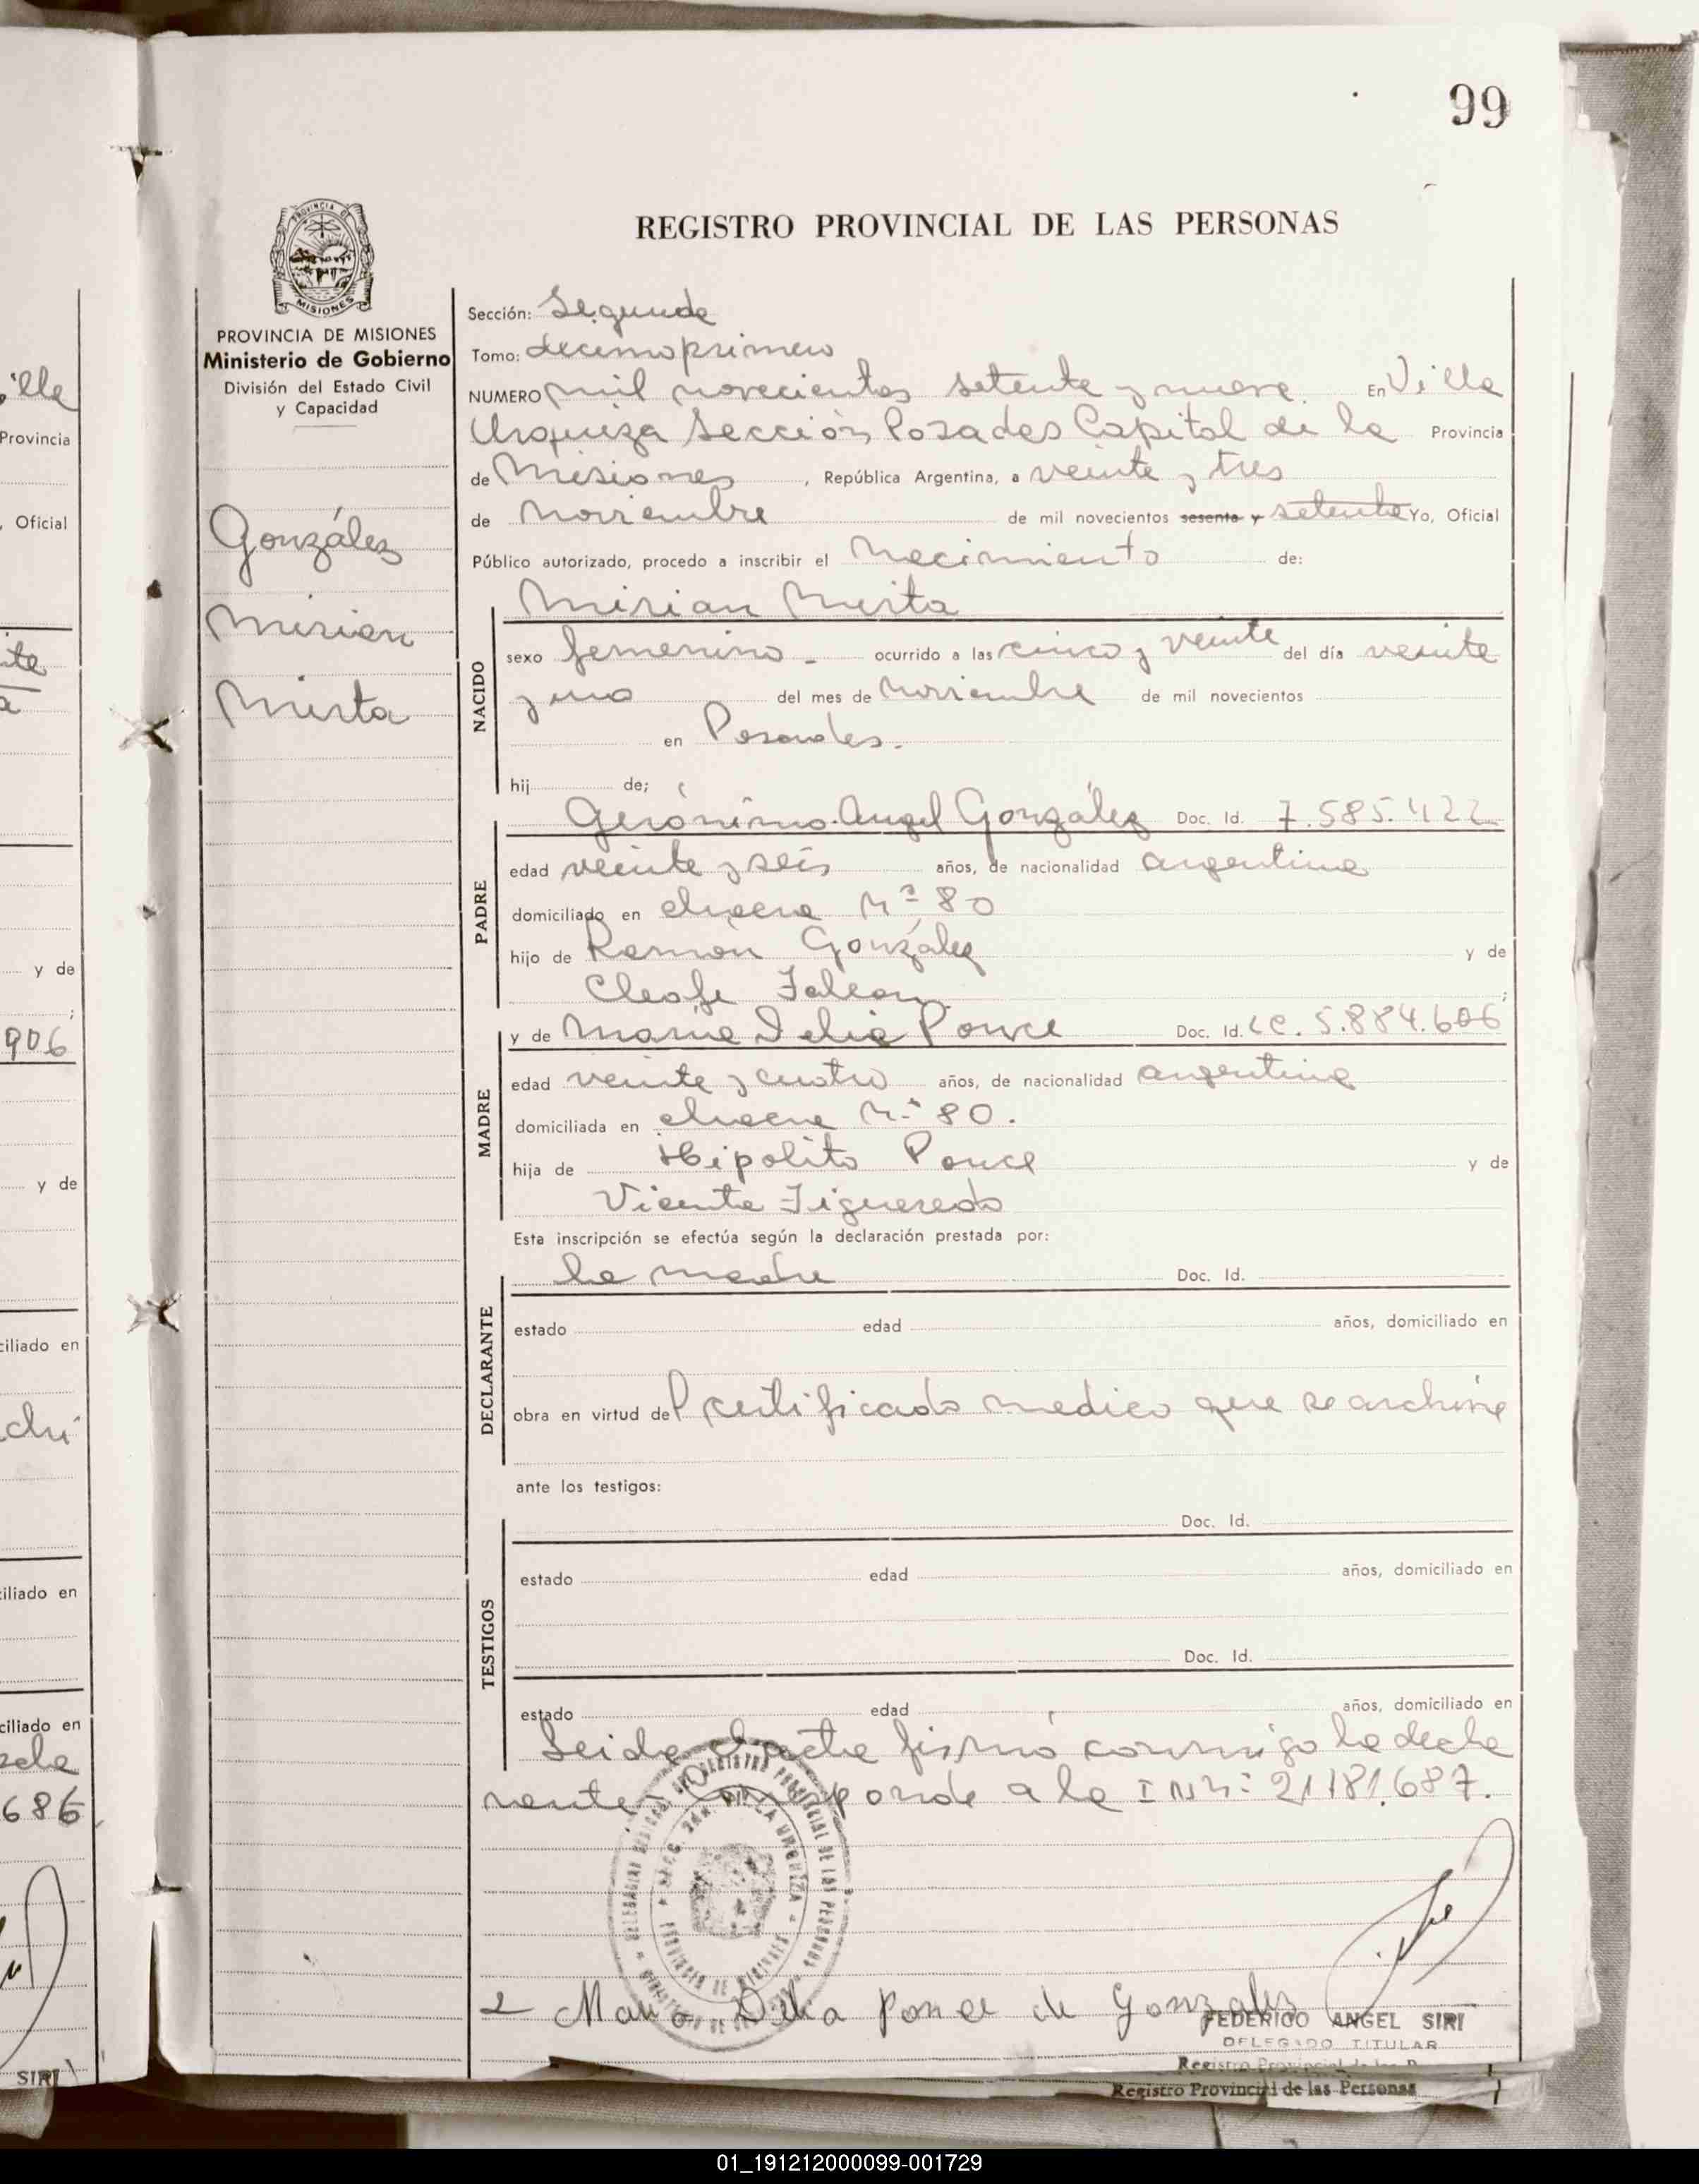 99
REGISTRO PROVINCIAL DE LAS PERSONAS
PROVINCIA DE MISIONES
Ministerio de Gobierno
División del Estado Civil
y Capacidad
González
Mirian
Mirta
Sección: Segunda
Tomo: decimoprimero
NUMERO mil novecientos setenta y nueve. En Villa
Urquiza Sección Posadas Capital de la Provincia
de Misiones, República Argentina, a veinte y tres
de noviembre de mil novecientos sesenta y setenta Yo, Oficial
Público autorizado, procedo a inscribir el Nacimiento de:
Mirian Mirta
NACIDO
sexo femenino - ocurrido a las cinco y veinte del día veinte
y uno del mes de noviembre de mil novecientos
en Posadas.
hij de;
Gerónimo Angel González Doc. Id. 7.585.422
PADRE
edad veinte y seis años, de nacionalidad argentina
domiciliado en chacra Nº 80
hijo de Ramón González y de
Cleofe Falcon;
y de María Delia Ponce Doc. Id. LC. 5.884.606
MADRE
edad veinte y cuatro años, de nacionalidad argentina
domiciliada en chacra Nº 80.
hija de Hipolito Ponce y de
Vicenta Figueredo
Esta inscripción se efectúa según la declaración prestada por:
la madre Doc. Id.
DECLARANTE
estado edad años, domiciliado en
obra en virtud del certificado medico que se archiva
ante los testigos:
Doc. Id.
TESTIGOS
estado edad años, domiciliado en
Doc. Id.
estado edad años, domiciliado en
Leida el acta firmó conmigo la decla
rante. Corresponde a la I Nº 21.181.687.
Maria Delia Ponce de Gonzalez
FEDERICO ANGEL SIRI
DELEGADO TITULAR
Registro Provincial de las Personas
01_191212000099-001729